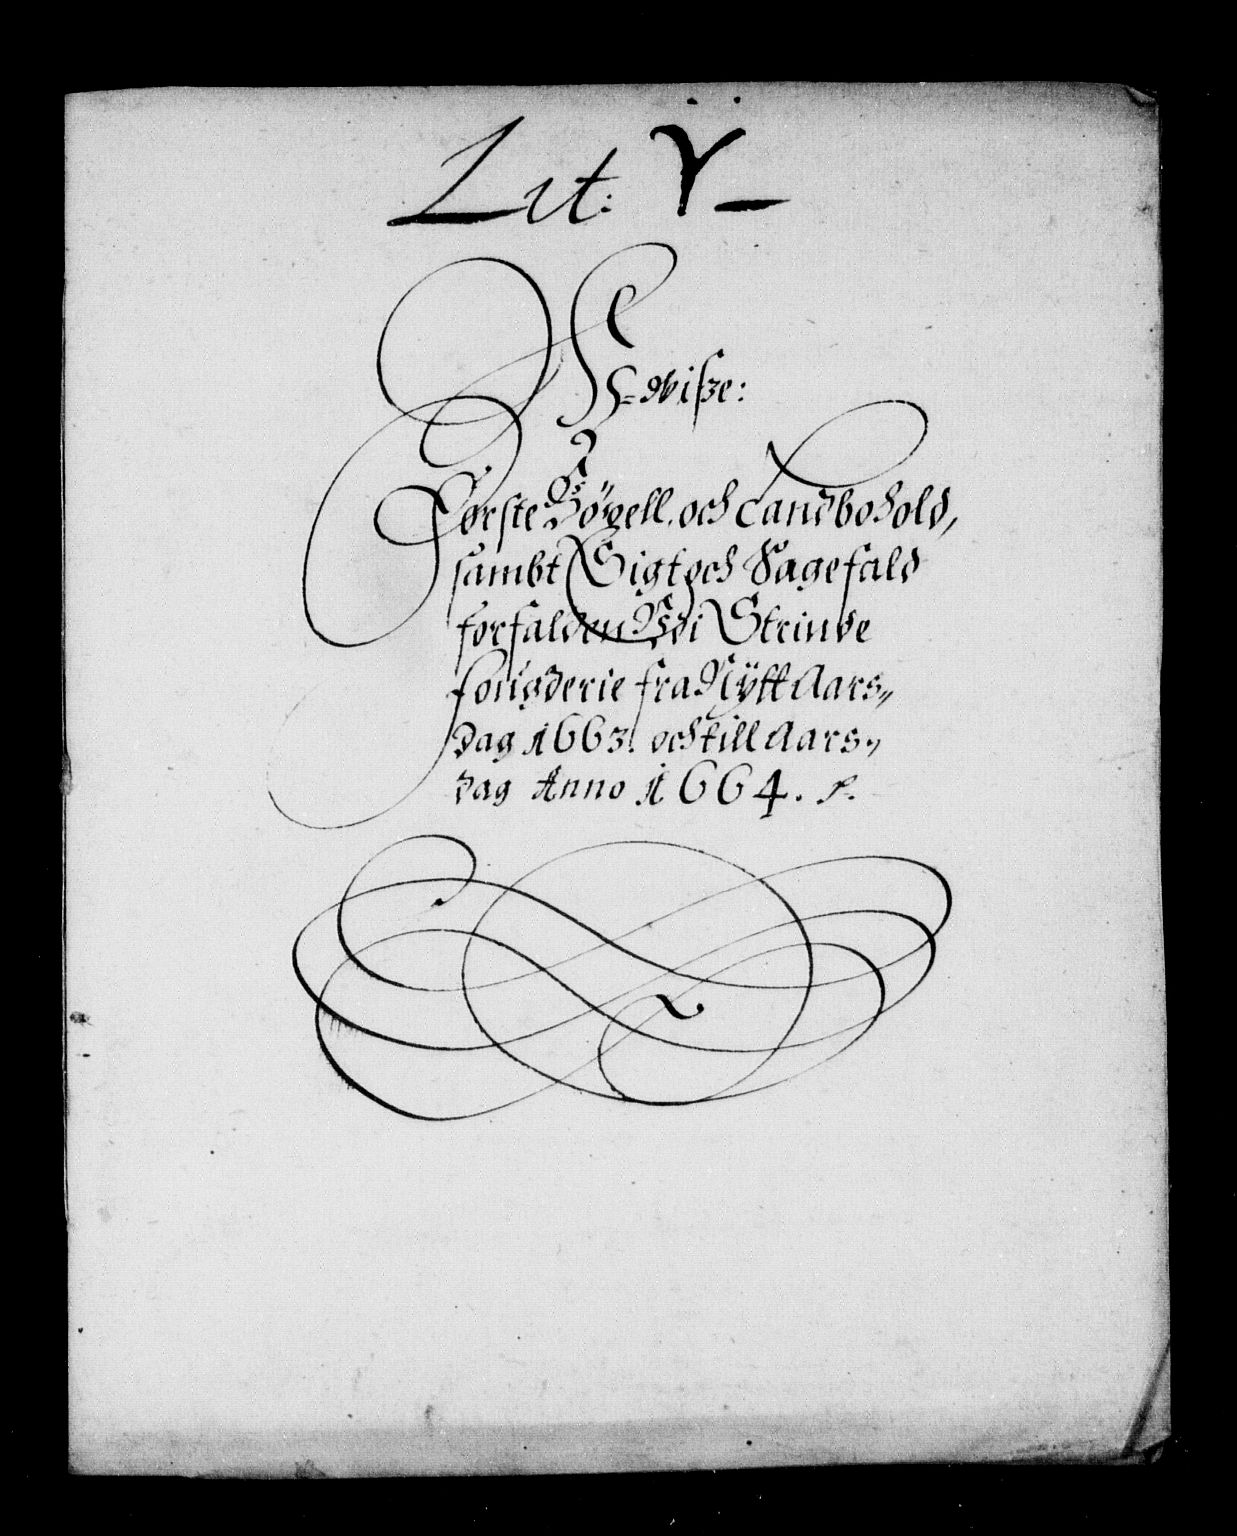 Lit: Ÿ
Første Bögsell. och Landbohold,
sambt Sigt och Sagefald
forfalden Udi Strinde
fougderie fra Nÿtt Aars„
dag 1663. och till Aars„
dag Anno 1664. P.